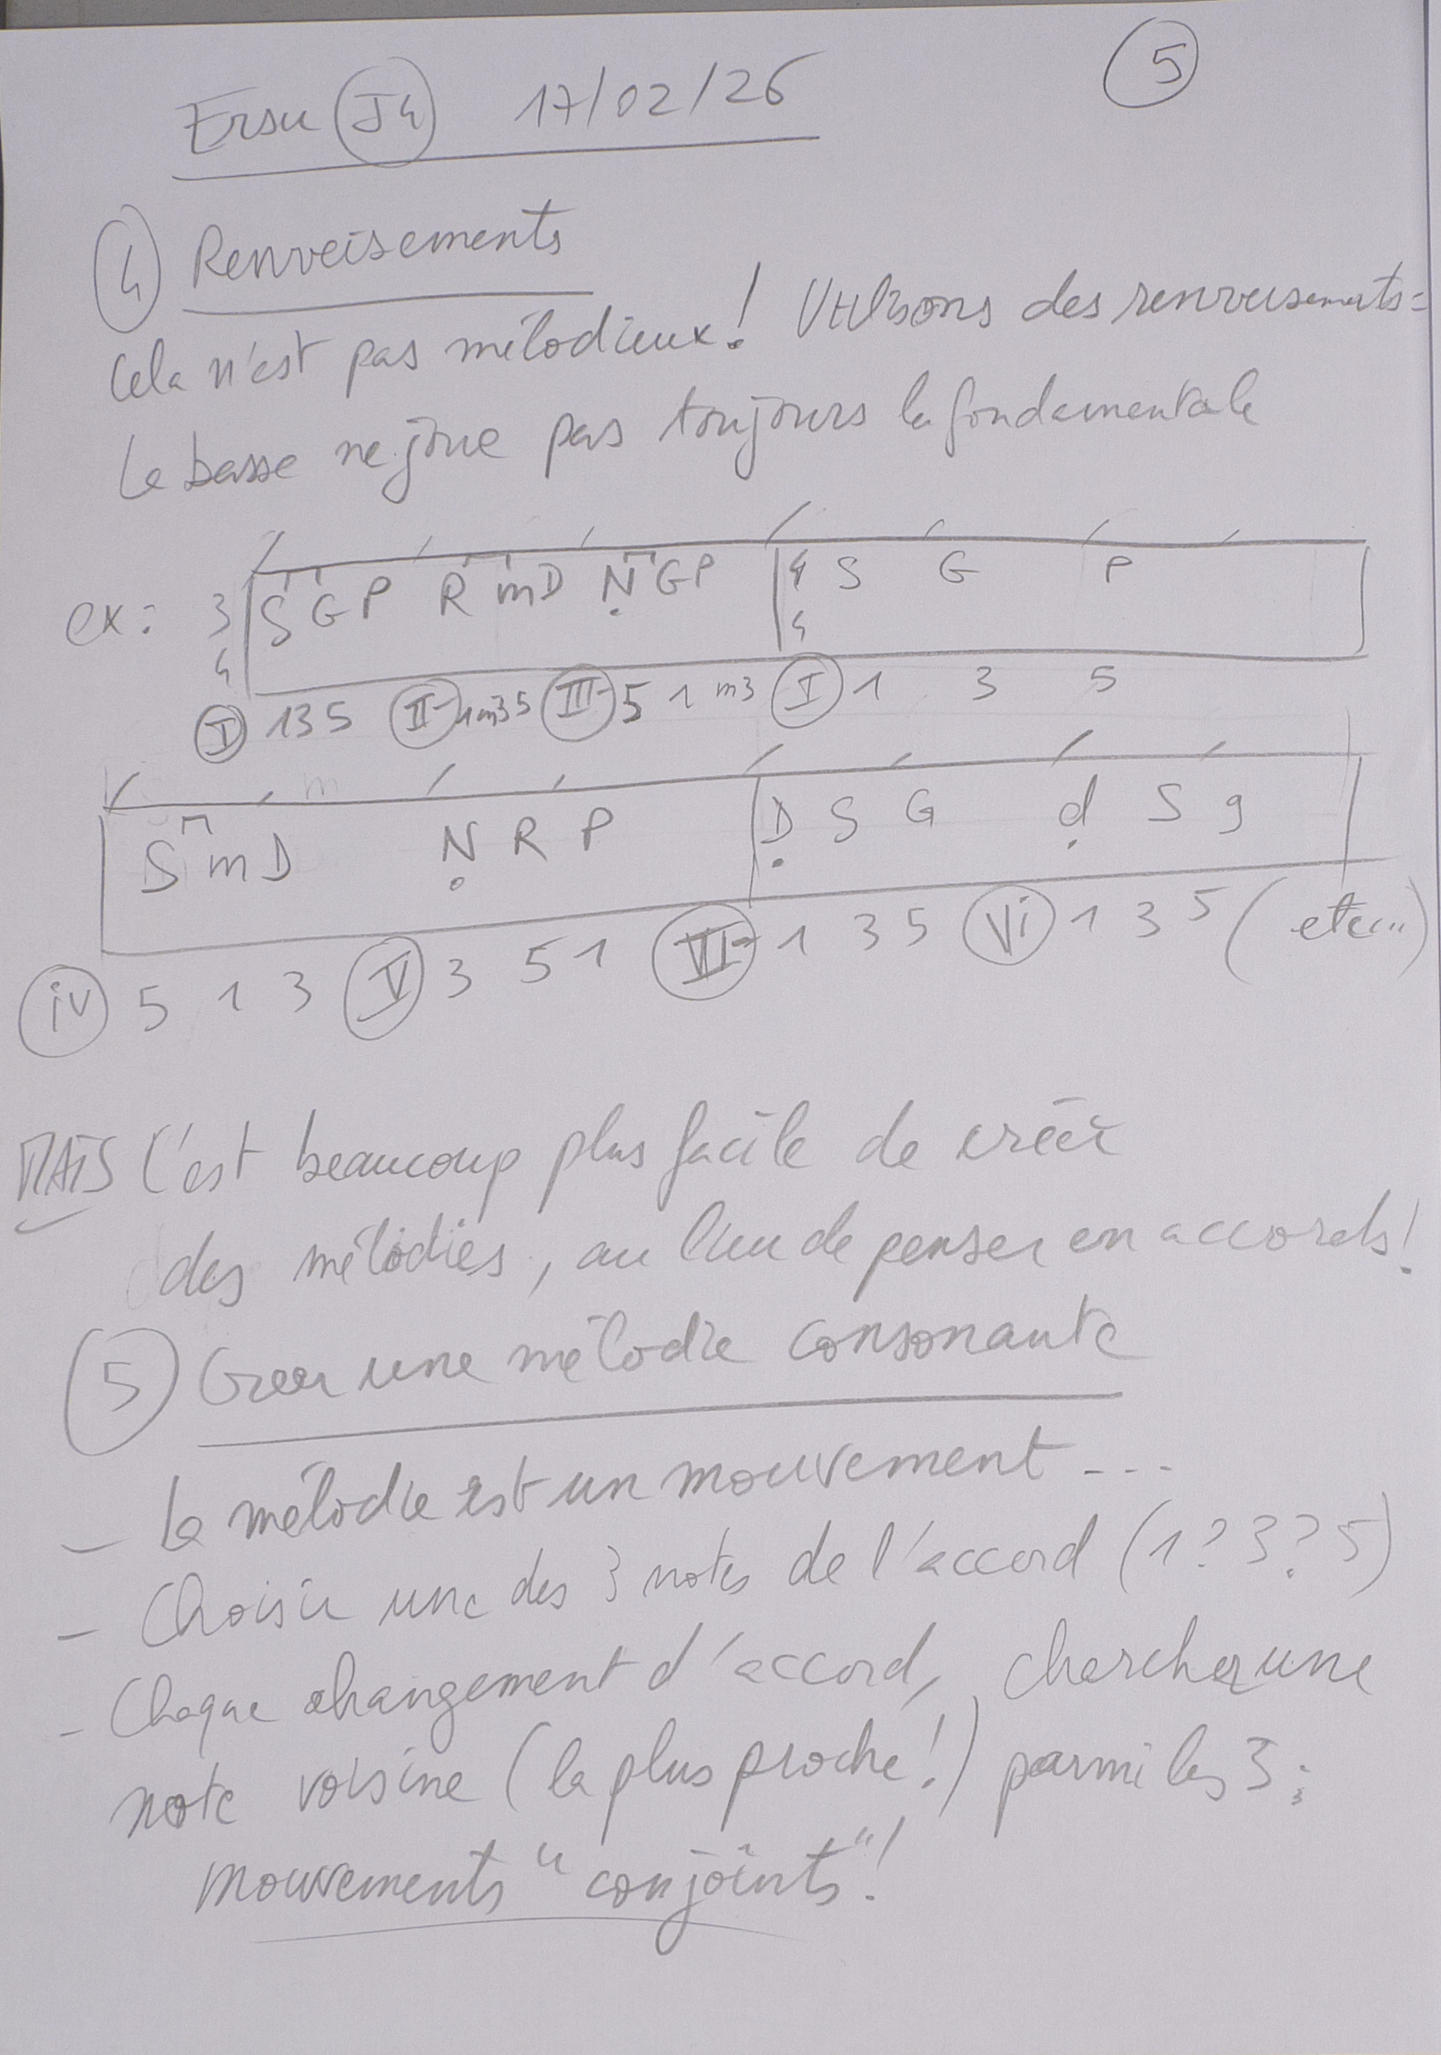 5
Ersu J4 17/02/26
4 Renversements
Cela n'est pas mélodieux! Utilisons des renversements =
la basse ne joue pas toujours la fondamentale
ex: 3 4 S G P R m D N G P 4 4 S G P
I 1 3 5 II- 1 m3 5 III- 5 1 m3 I 1 3 5
S m D N R P D S G d S g
iv 5 1 3 V 3 5 1 VI- 1 3 5 Vi 1 3 5 (etc...)
MAIS c'est beaucoup plus facile de créer
des mélodies, au lieu de penser en accords!
5 Créer une mélodie consonante
- la mélodie est un mouvement ...
- Choisir une des 3 notes de l'accord (1? 3? 5)
- Chaque changement d'accord, chercher une
note voisine (la plus proche!) parmi les 3 :
mouvements "conjoints"!